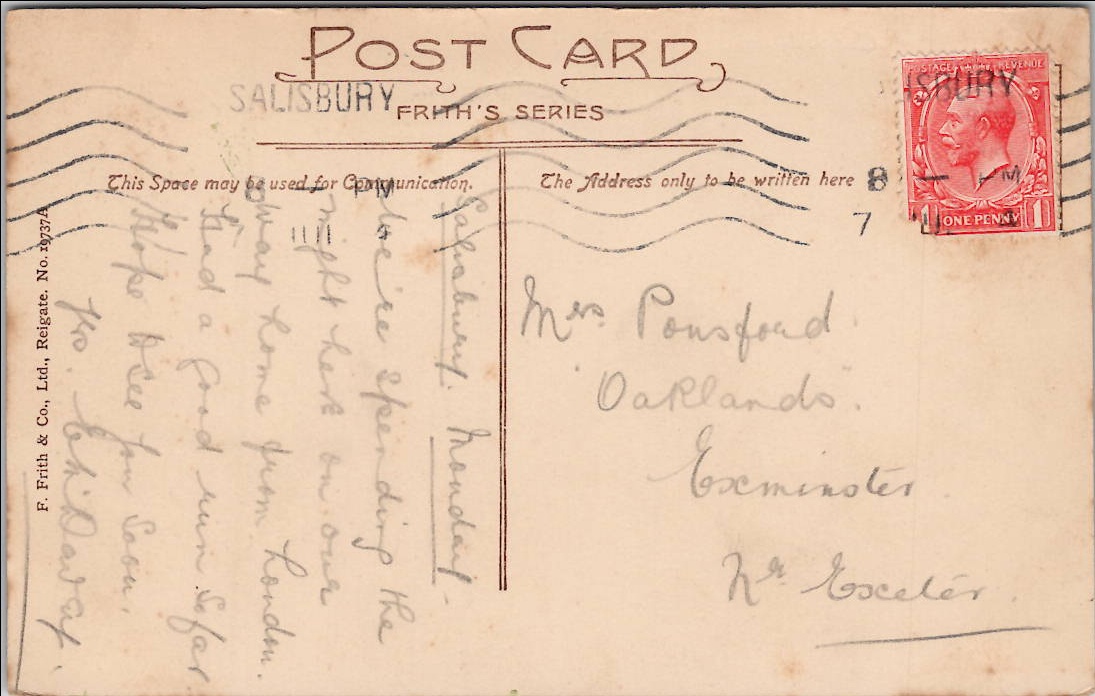 POST CARD
FRITH'S SERIES
SALISBURY
8 PM
This Space may be used for Communication.
The Address only to be written here
POSTAGE REVENUE
ISBURY
8
7
1 ONE PENNY 1
Salisbury. Monday.
We're spending the
night here on our
way home from London.
Had a good run so far
Hope to see you soon.
F. Frith & Co., Ltd., Reigate. No. 19737A
Mrs. Ponsford
Oaklands.
Exminster.
Nr Exeter.